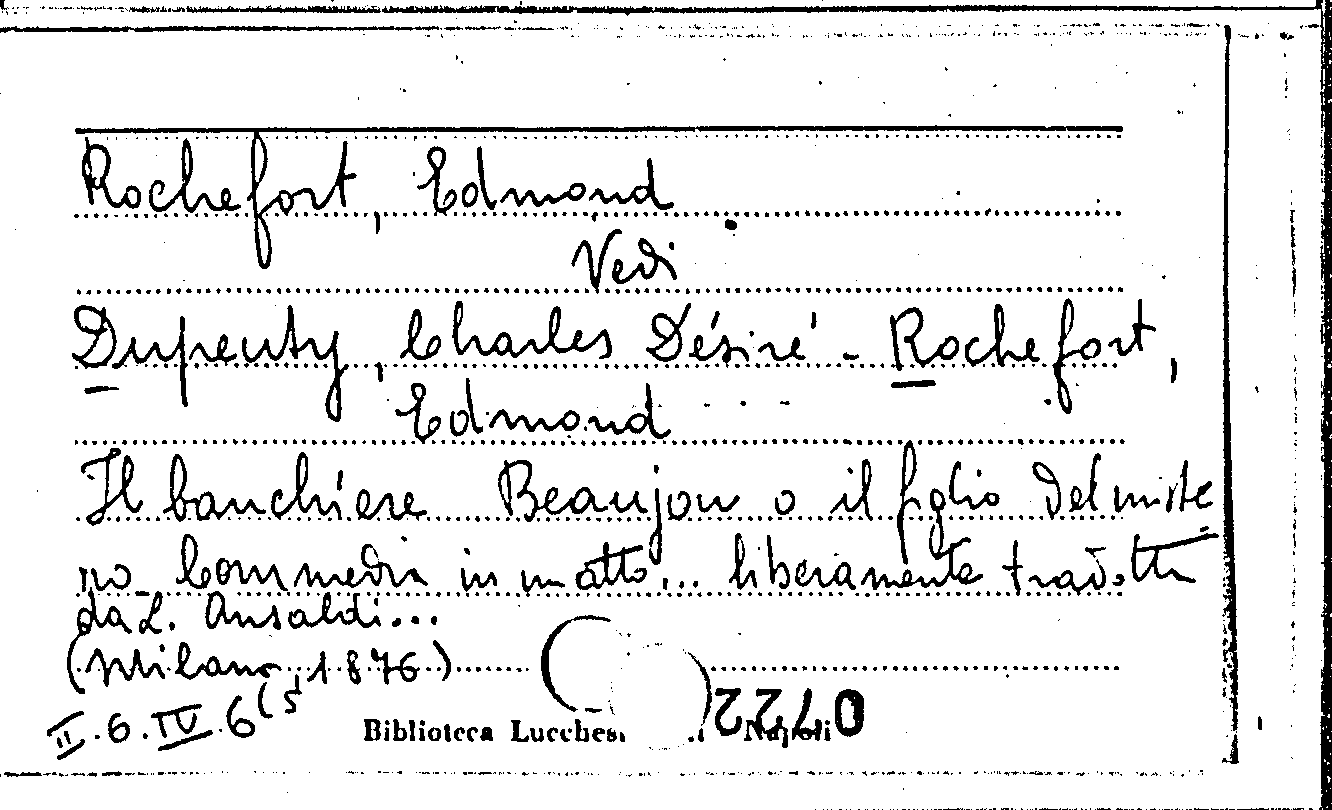 Rochefort, Edmond
Vedi
Dupeuty, Charles Désiré - Rochefort,
Edmond
Il banchiere Beaujou o il figlio del miste
ro. Commedia in un atto... liberamente tradotta
da L. Ansaldi...
(Milano, 1876)
II.6.IV.6(5
Biblioteca Lucchesi Napoli